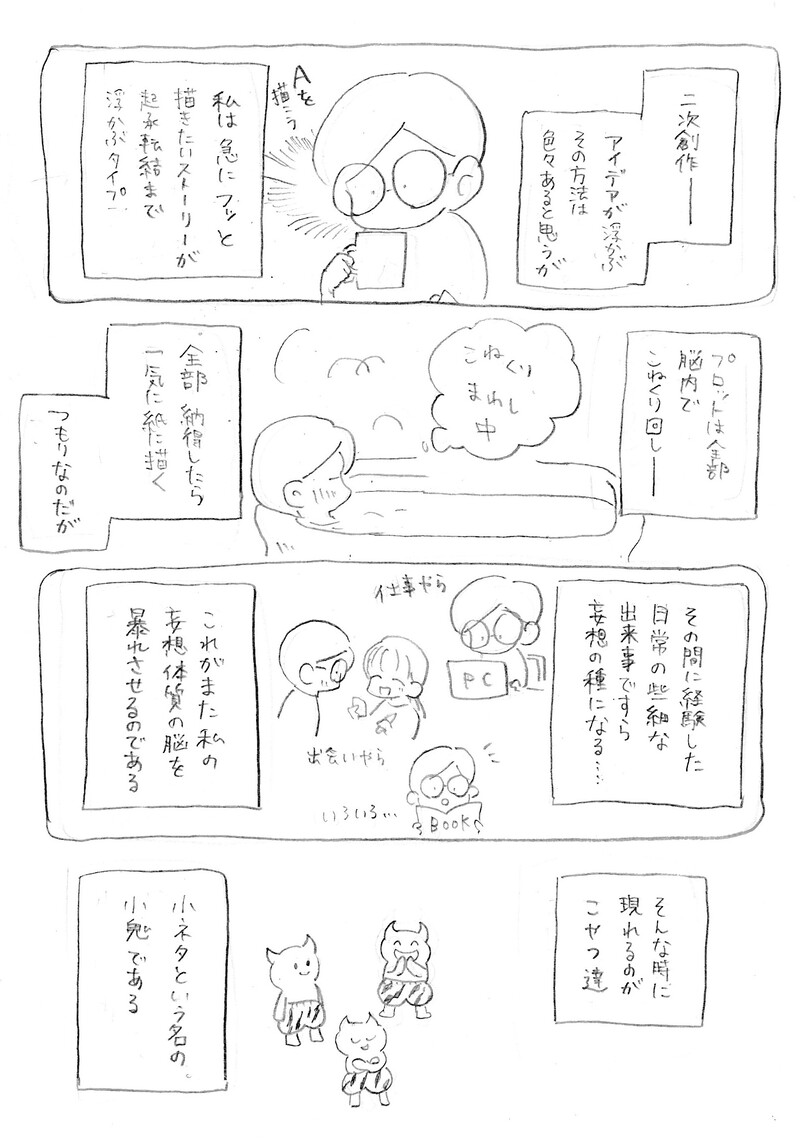 二次創作――
アイデアが浮かぶ
その方法は
色々あると思うが
Aを
描こう
私は急にフッと
描きたいストーリーが
起承転結まで
浮かぶタイプ
プロットは全部
脳内で
こねくり回し――
こねくり
まわし
中
全部納得したら
一気に紙に描く
つもりなのだが
その間に経験した
日常の些細な
出来事ですら
妄想の種になる……
仕事やら
PC
出会いやら
いろいろ…
BOOK
これがまた私の
妄想体質の脳を
暴れさせるのである
そんな時に
現れるのが
こやつ達
小ネタという名の
小鬼である